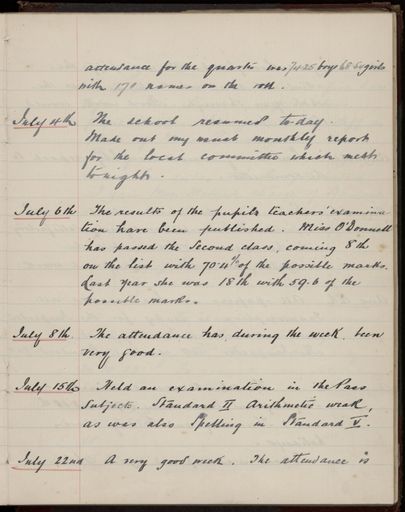 attendance for the quarter was 74.25 boys 68.50 girls
with 170 names on the roll.
July 4th The school resumed to-day.
Made out my usual monthly report
for the local committee which meets
to-night.
July 6th The results of the pupil teachers' examina
tion have been published. Miss O'Donnell
has passed the Second class, coming 8th
on the list with 70.4% of the possible marks.
Last year she was 18th with 59.6 of the
possible marks.
July 8th. The attendance has, during the week, been
very good.
July 15th Held an examination in the Pass
Subjects. Standard II Arithmetic weak,
as was also Spelling in Standard V.
July 22nd A very good week. The attendance is